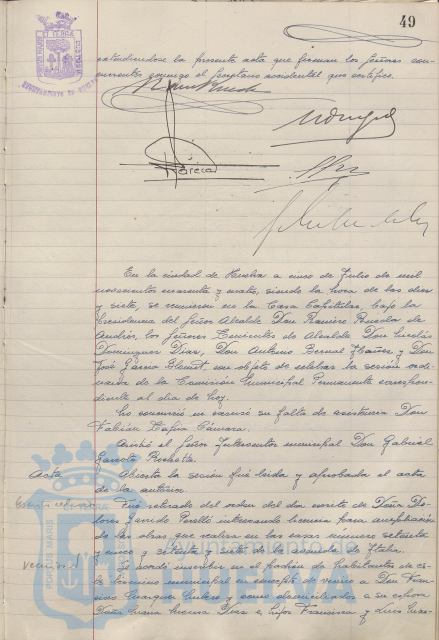 49
extendiéndose la presente acta que firman los Señores con-
currentes conmigo el Secretario accidental que certifico.
García
En la ciudad de Huelva a cinco de Julio de mil
novecientos cuarenta y cuatro, siendo la hora de las diez
y siete, se reunieron en la Casa Capitular, bajo la
Presidencia del Señor Alcalde Don Ramiro Rueda de
Andrés, los Señores Tenientes de Alcalde Don Nicolás
Dominguez Diaz, Don Antonio Bernal y Don
José con objeto de celebrar la sesión ordi-
naria de la Comisión Municipal Permanente correspon-
diente al día de hoy.
No concurrió ni excusó su falta de asistencia Don
Fabián Tapia Cámara.
Asistió el Señor Interventor municipal Don Gabriel
García
Acta
Abierta la sesión fué leída y aprobada el acta
de la anterior.
Fué retirado del orden del día escrito de Doña Do-
lores Garrido Perelló interesando licencia para ampliación
de las obras que realiza en las casas número setenta
y cinco y setenta y siete de la avenida de Italia.
Se acordó inscribir en el padrón de habitantes de es-
te término municipal en concepto de vecino a Don Fran-
cisco Marquez y como domiciliados a su esposa
Doña María e hijos Francisca y Luis
PORTUS MARIS
Ayuntamiento de